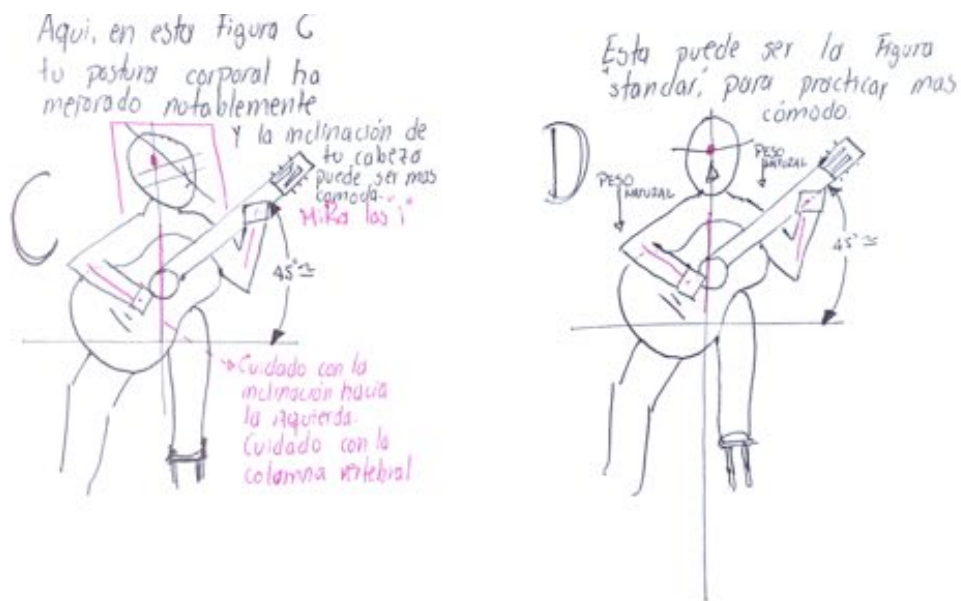 Aqui, en esta Figura C
tu postura corporal ha
mejorado notablemente
y la inclinación de
tu cabeza
puede ser mas
comoda.
MiRa las "i"
C
45° ≃
Cuidado con la
inclinación hacia
la izquierda.
Cuidado con la
columna vertebral
Esta puede ser la Figura
"standar", para practicar mas
cómodo.
D
PESO
NATURAL
PESO
NATURAL
45° ≃